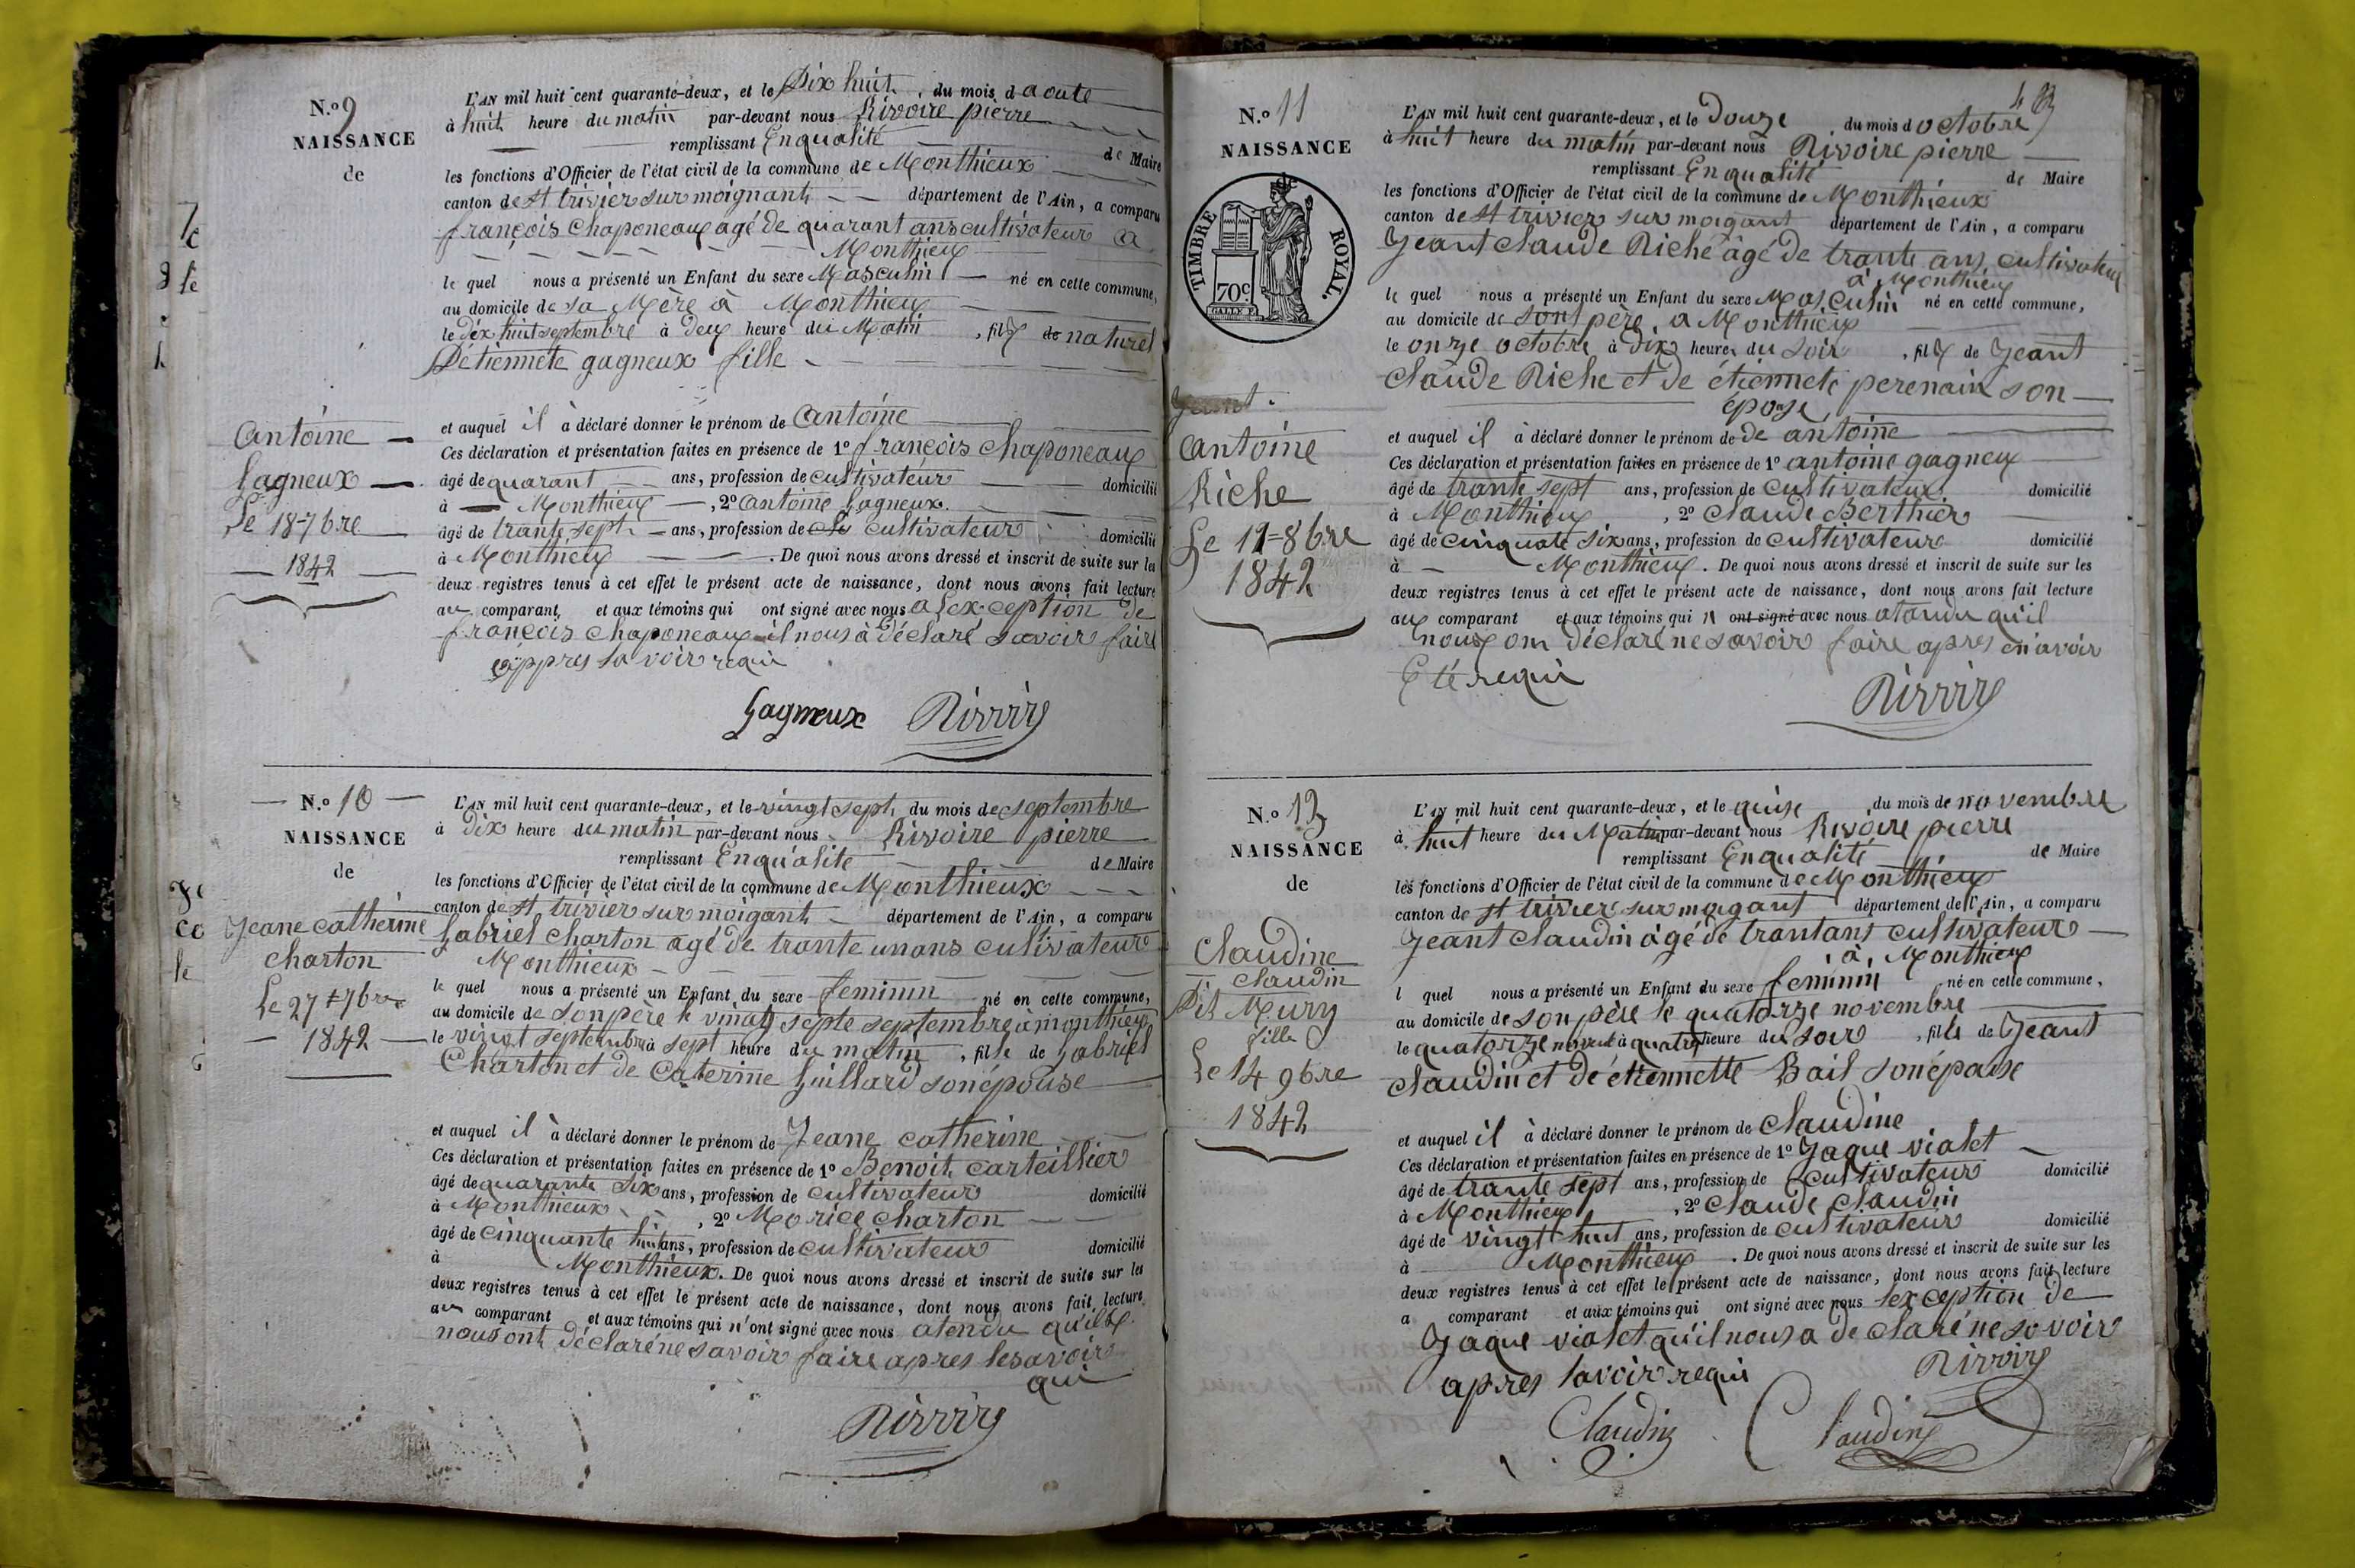 N.º 9
NAISSANCE
de
Antoine
Gagneux
Le 18 7bre
1842
L'AN mil huit cent quarante-deux, et le Dix huit, du mois d aoute
à huit heure du matin par-devant nous Rivoire pierre
remplissant En qualité de Maire
les fonctions d'Officier de l'état civil de la commune de Monthieux
canton de st trivier sur moignant département de l'Ain, a comparu
françois Chaponeaux agé de quarant ans cultivateur a
Monthieux
le quel nous a présenté un Enfant du sexe Masculin né en cette commune,
au domicile de sa Mère à Monthieux
le dix huit septembre à deux heure du Matin, fils de naturel
Détiennete gagneux fille
et auquel il à déclaré donner le prénom de Antoine
Ces déclaration et présentation faites en présence de 1º françois Chaponeaux
âgé de quarant ans, profession de cultivateur domicilié
à Monthieux, 2º Antoine Gagneux
âgé de trante sept ans, profession de cultivateur domicilié
à Monthieux. De quoi nous avons dressé et inscrit de suite sur les
deux registres tenus à cet effet le présent acte de naissance, dont nous avons fait lecture
au comparant et aux témoins qui ont signé avec nous a Lexception de
françois Chaponeaux il nous à Déclaré savoir faire
appres la voir requi
Gagneux Rivoire
N.º 10
NAISSANCE
de
Jeane catherine
charton
Le 27 7bre
1842
L'AN mil huit cent quarante-deux, et le vingt sept, du mois de septembre
à Dix heure du matin par-devant nous Rivoire pierre
remplissant En qualité de Maire
les fonctions d'Officier de l'état civil de la commune de Monthieux
canton de st trivier sur moigant département de l'Ain, a comparu
Gabriel Charton agé de trante un ans cultivateur
Monthieux
le quel nous a présenté un Enfant du sexe feminin né en cette commune,
au domicile de son père le vingt septe septembre à monthieux
le vingt septembre à sept heure du matin, fille de Gabriel
Charton et de Caterine Guillard son épouse
et auquel il à déclaré donner le prénom de Jeane catherine
Ces déclaration et présentation faites en présence de 1º Benoit carteillier
âgé de quarante six ans, profession de cultivateur domicilié
à Monthieux, 2º Morice charton
âgé de cinquante huit ans, profession de cultivateur domicilié
à Monthieux. De quoi nous avons dressé et inscrit de suite sur les
deux registres tenus à cet effet le présent acte de naissance, dont nous avons fait lecture
au comparant et aux témoins qui n'ont signé avec nous atendu qu'ils
nous ont déclaré ne savoir faire apres lesavoir
qui
Rivoire
N.º 11
NAISSANCE
TIMBRE ROYAL.
70c
Jeant
antoine
Riche
Le 11=8bre
1842
L'AN mil huit cent quarante-deux, et le Douze du mois d octobre
à huit heure du matin par-devant nous Rivoire pierre
remplissant En qualité de Maire
les fonctions d'Officier de l'état civil de la commune de Monthieux
canton de st trivier sur moigant département de l'Ain, a comparu
Jeant claude Riche âgé de trante ans cultivateur
à Monthieux
le quel nous a présenté un Enfant du sexe Masculin né en cette commune,
au domicile de sont père, a Monthieux
le onze octobre à dix heures du soir, fils de Jeant
Claude Riche et de étiennete perenain son
épouse
et auquel il à déclaré donner le prénom de De antoine
Ces déclaration et présentation faites en présence de 1º antoine gagneux
âgé de trante sept ans, profession de cultivateur domicilié
à Monthieux, 2º claude Berthier
âgé de cinquate six ans, profession de cultivateur domicilié
à Monthieux. De quoi nous avons dressé et inscrit de suite sur les
deux registres tenus à cet effet le présent acte de naissance, dont nous avons fait lecture
aux comparant et aux témoins qui n ont signé avec nous atandu qu'il
nous on déclaré ne savoir faire apres en avoir
Eté requi
Rivoire
N.º 12
NAISSANCE
de
Claudine
claudin
Dit Mury
fille
Le 14 9bre
1842
L'AN mil huit cent quarante-deux, et le quise du mois de novembre
à huit heure du Matin par-devant nous Rivoire pierre
remplissant En qualité de Maire
les fonctions d'Officier de l'état civil de la commune de Monthieux
canton de st trivier sur moigant département de l'Ain, a comparu
Jeant claudin âgé de trantans cultivateur
à Monthieux
l quel nous a présenté un Enfant du sexe feminin né en cette commune,
au domicile de son père le quatorze novembre
le quatorze à quatre heure du soir, fille de Jeant
claudin et de étiennette Bail son épouse
et auquel il à déclaré donner le prénom de Claudine
Ces déclaration et présentation faites en présence de 1º Jaque violet
âgé de trante sept ans, profession de cultivateur domicilié
à Monthieux, 2º claude claudin
âgé de vingt huit ans, profession de cultivateur domicilié
à Monthieux. De quoi nous avons dressé et inscrit de suite sur les
deux registres tenus à cet effet le présent acte de naissance, dont nous avons fait lecture
a comparant et aux témoins qui ont signé avec nous lexception de
Jaque violet qu'il nous a declaré ne savoir
apres lavoir requi
Rivoire
Claudin Claudin